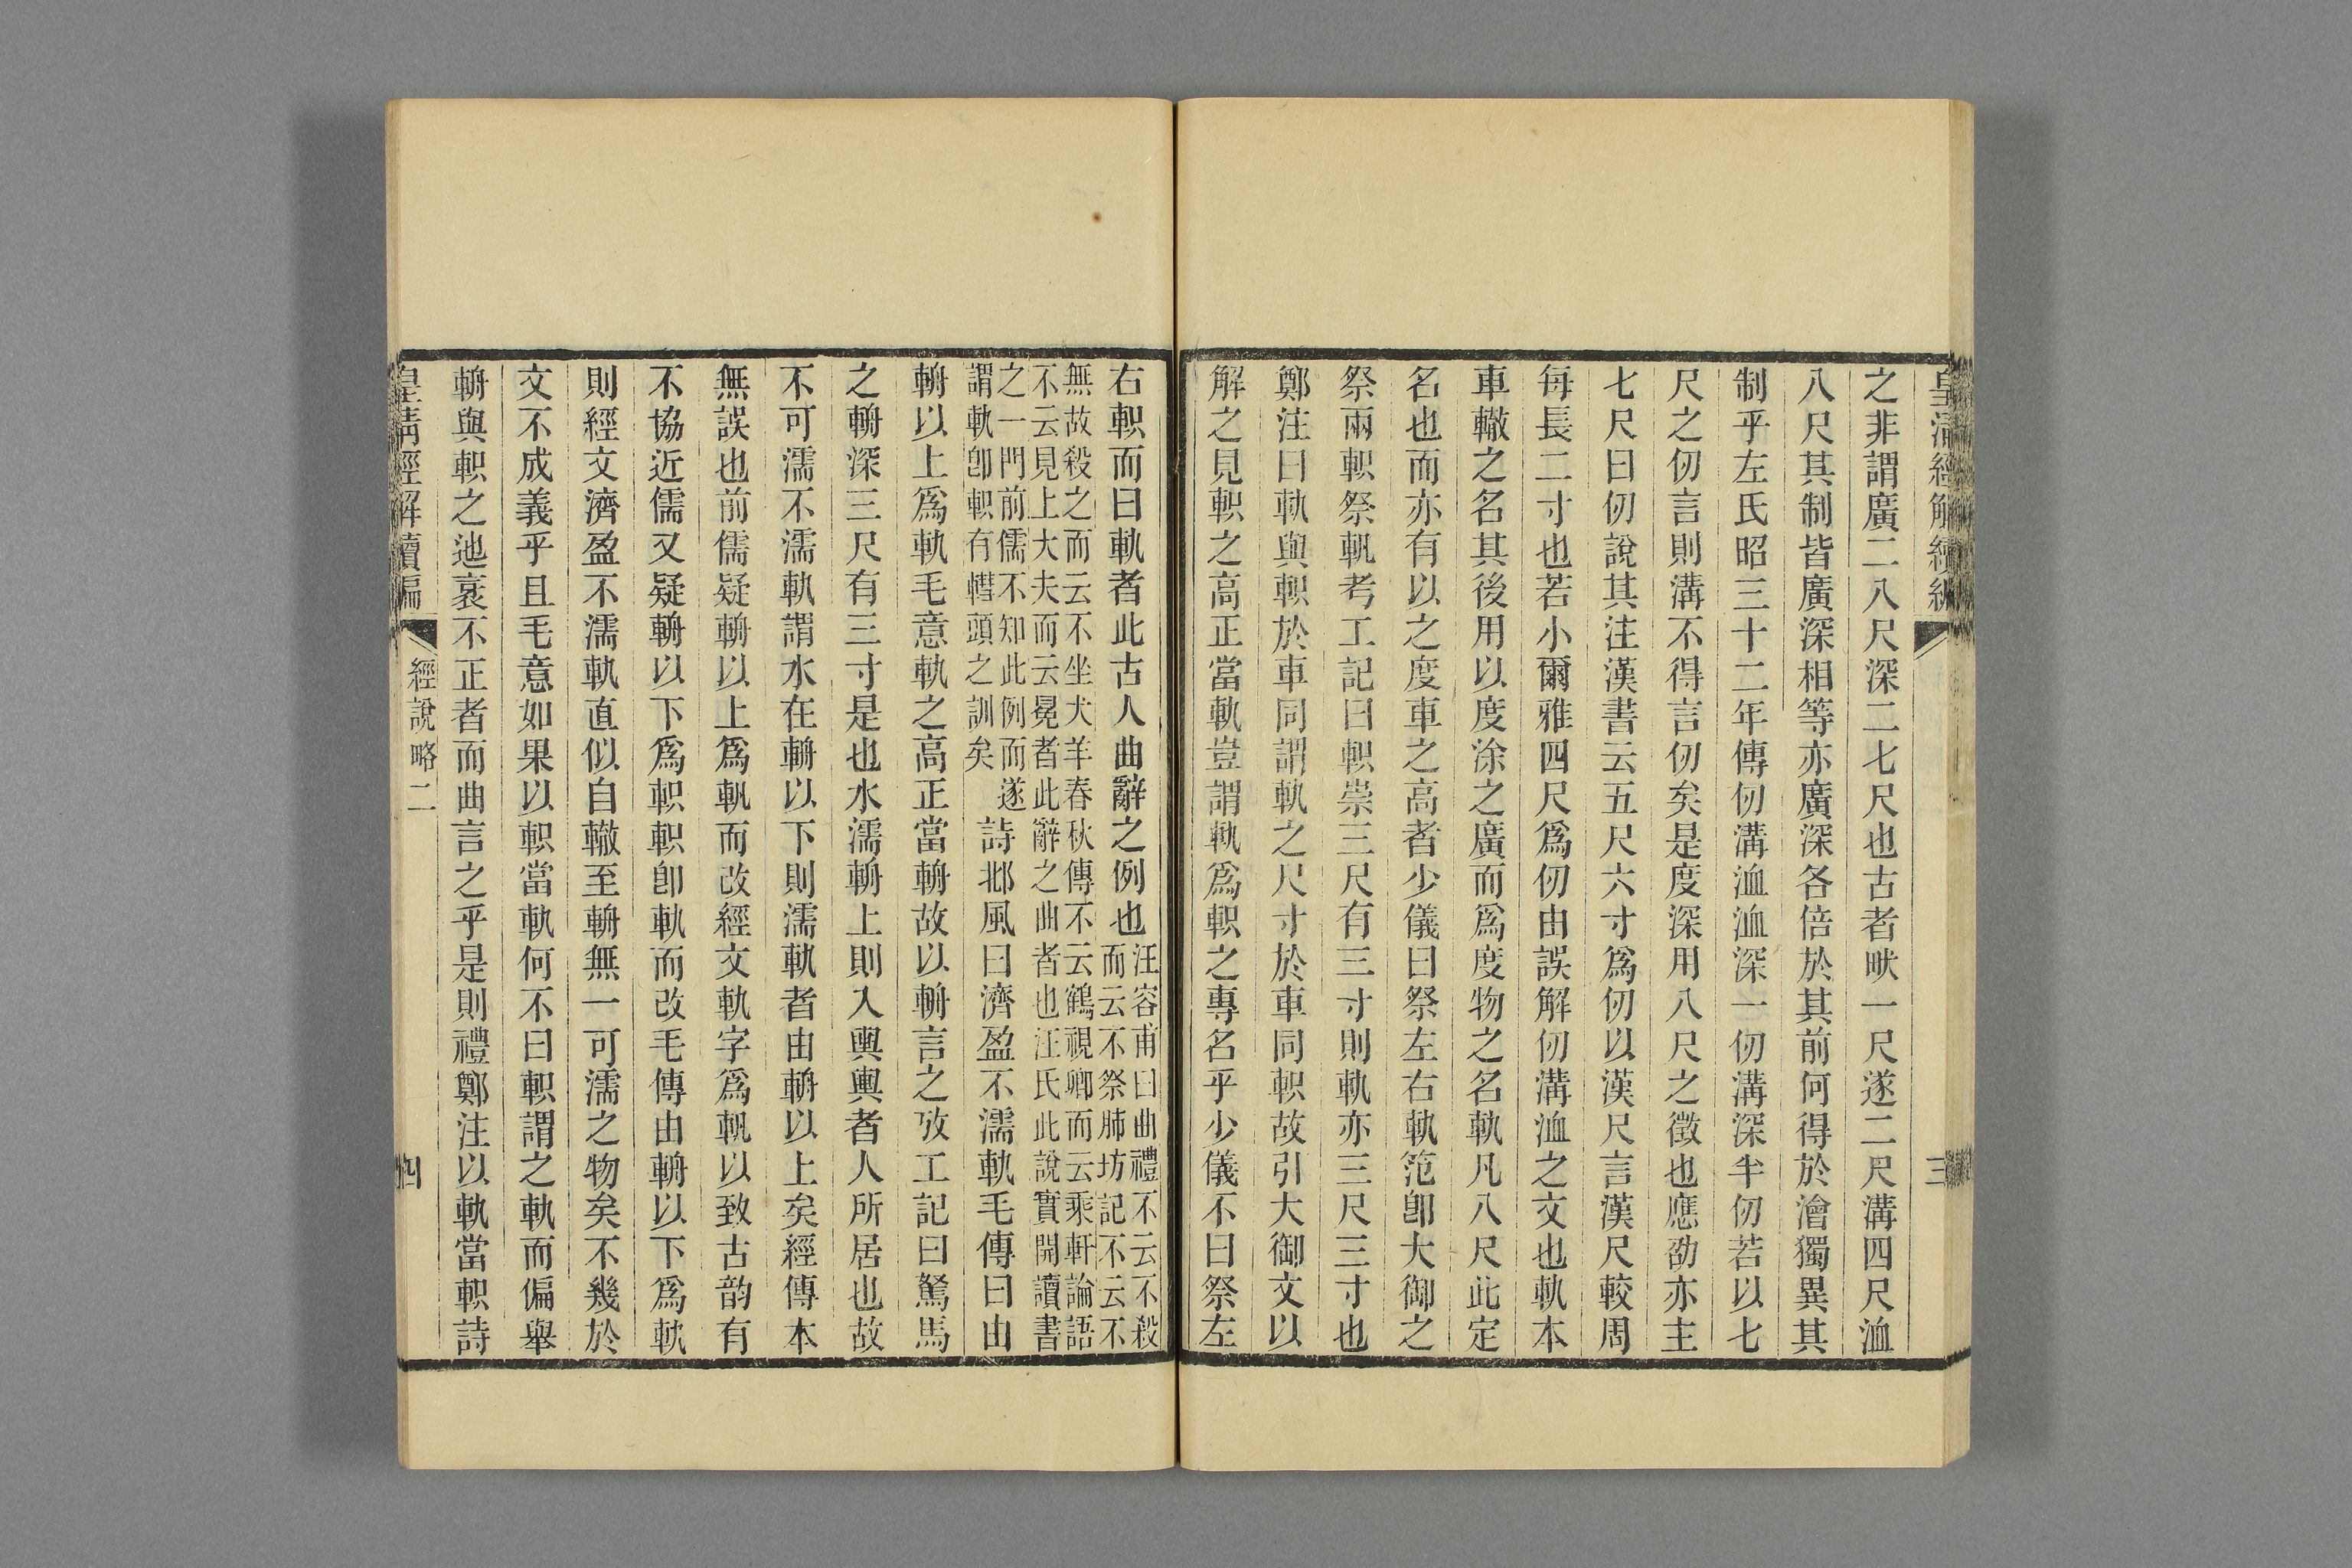 皇清經解續編
三
之非謂廣二八尺深二七尺也古者畎一尺遂二尺溝四尺洫
八尺其制皆廣深相等亦廣深各倍於其前何得於澮獨異其
制乎左氏昭三十二年傳仞溝洫洫深一仞溝深半仞若以七
尺之仞言則溝不得言仞矣是度深用八尺之徵也應劭亦主
七尺曰仞說其注漢書云五尺六寸爲仞以漢尺言漢尺較周
每長二寸也若小爾雅四尺爲仞由誤解仞溝洫之文也軌本
車轍之名其後用以度涂之廣而爲度物之名軌凡八尺此定
名也而亦有以之度車之高者少儀曰祭左右軌笵卽大御之
祭兩軹祭軓考工記曰軹崇三尺有三寸則軌亦三尺三寸也
鄭注曰軌與軹於車同謂軌之尺寸於車同軹故引大御文以
解之見軹之高正當軌豈謂軌爲軹之專名乎少儀不曰祭左
右軹而曰軌者此古人曲辭之例也
汪容甫曰曲禮不云不殺
而云不祭肺坊記不云不
無故殺之而云不坐犬羊春秋傳不云鶴視卿而云乘軒論語
不云見上大夫而云冕者此辭之曲者也汪氏此說實開讀書
之一門前儒不知此例而遂
謂軌卽軹有轊頭之訓矣
詩邶風曰濟盈不濡軌毛傳曰由
輈以上爲軌毛意軌之高正當輈故以輈言之攷工記曰駑馬
之輈深三尺有三寸是也水濡輈上則入輿輿者人所居也故
不可濡不濡軌謂水在輈以下則濡軌者由輈以上矣經傳本
無誤也前儒疑輈以上爲軓而改經文軌字爲軓以致古韵有
不協近儒又疑輈以下爲軹軹卽軌而改毛傳由輈以下爲軌
則經文濟盈不濡軌直似自轍至輈無一可濡之物矣不幾於
文不成義乎且毛意如果以軹當軌何不曰軹謂之軌而偏舉
輈與軹之迆衺不正者而曲言之乎是則禮鄭注以軌當軹詩
皇清經解續編
經說略二
四